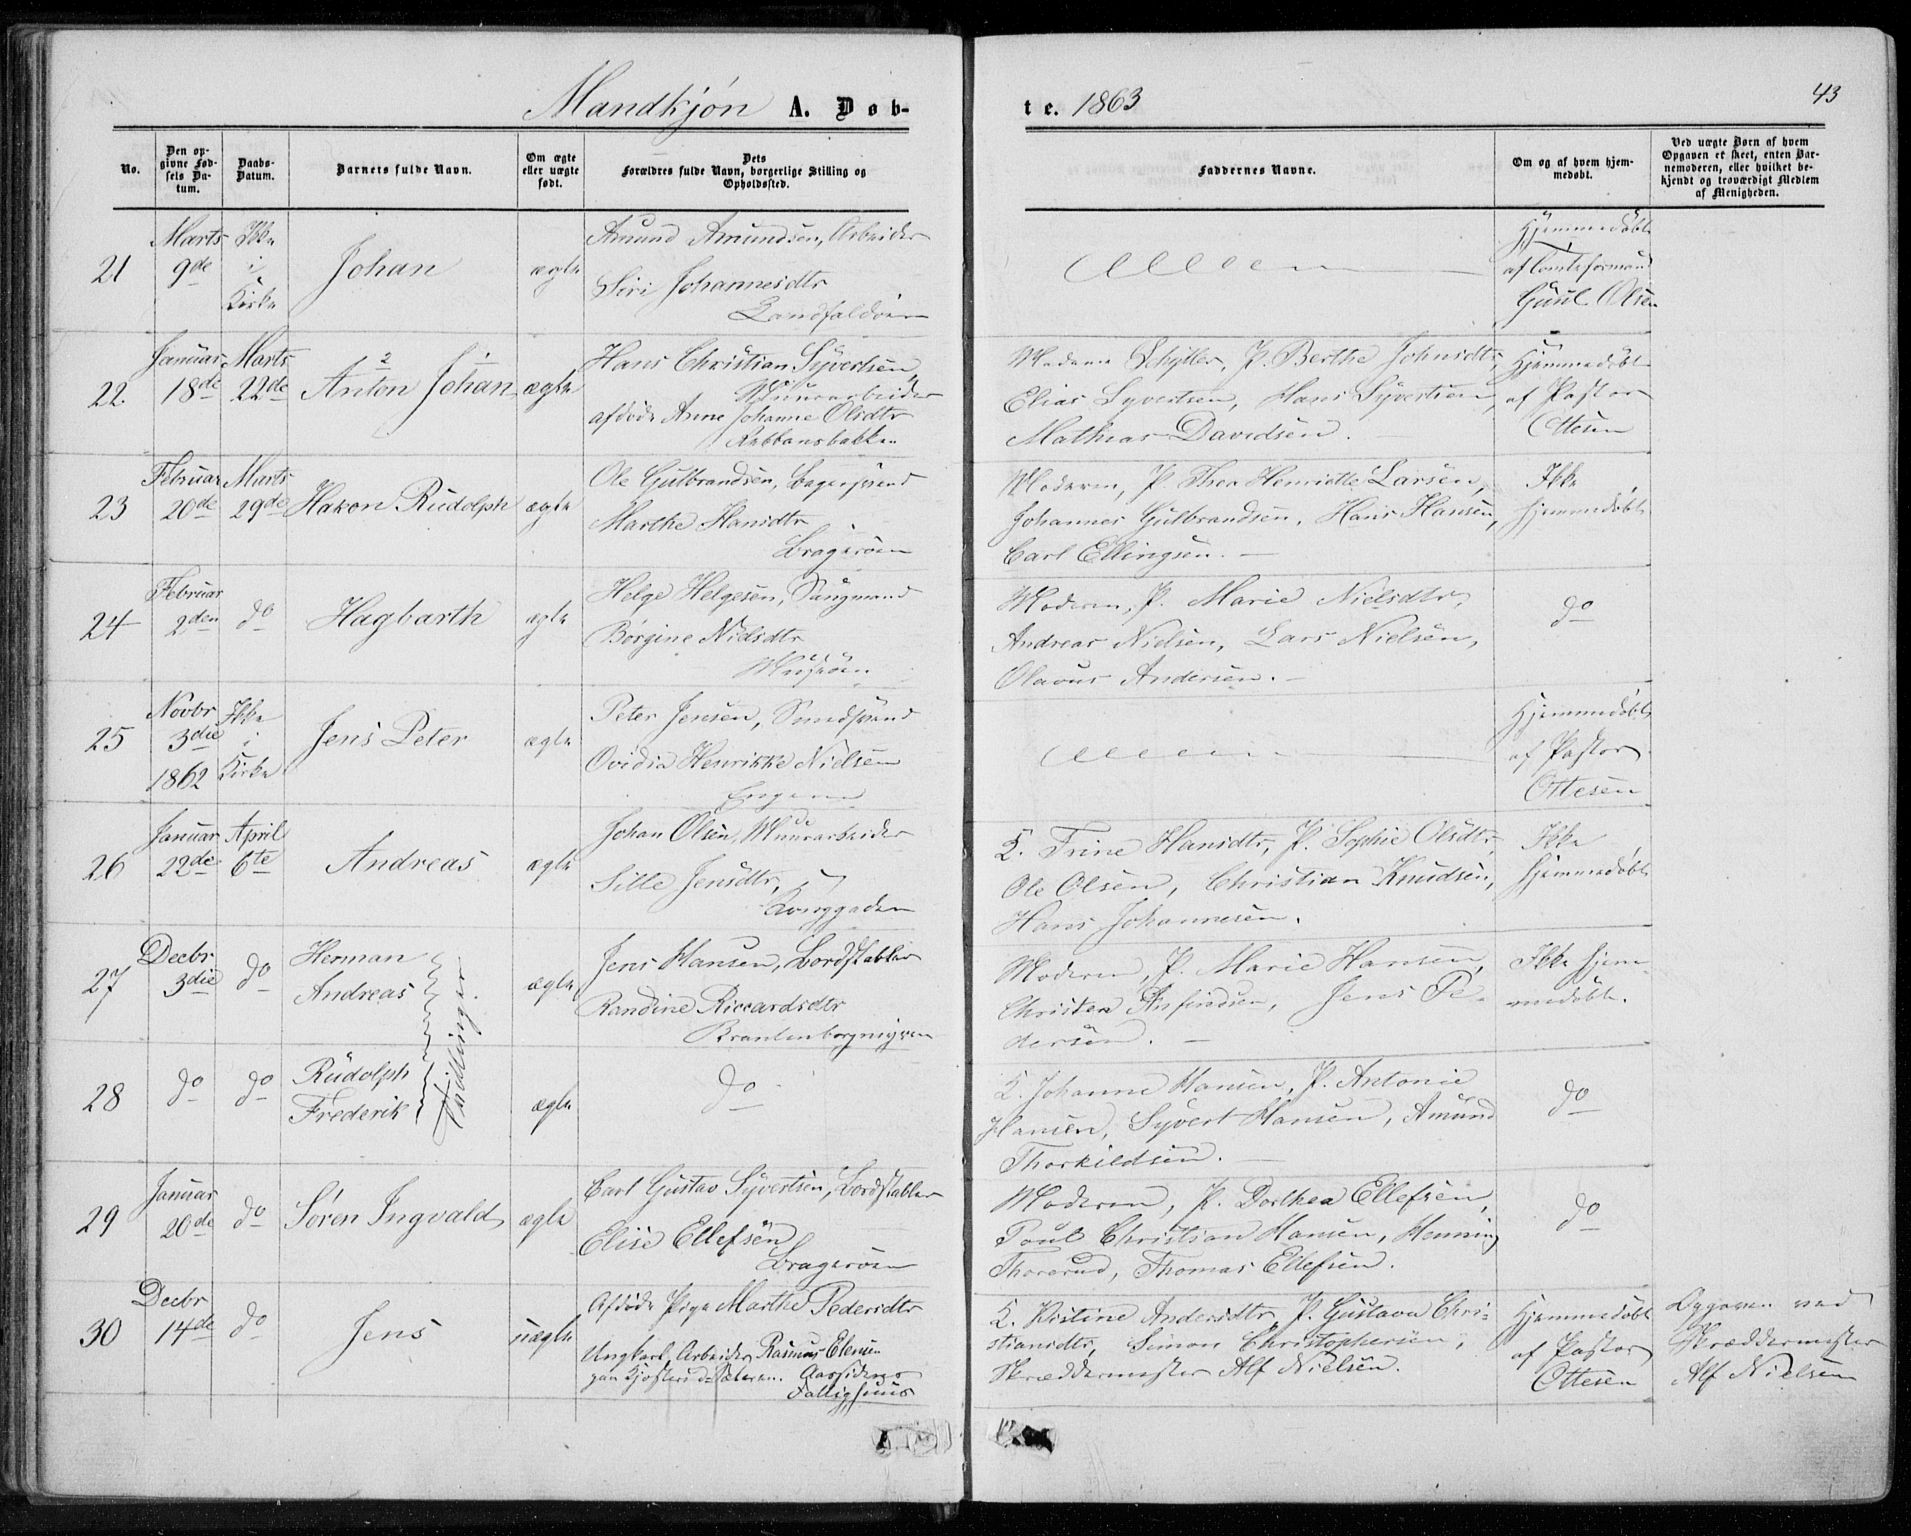 Mandkjøn A. Døb-
te. 1863
43
No.
Den opgivne Fødsels Datum.
Daabs-Datum.
Barnets fulde Navn.
Om ægte eller uægte født.
Dets Forældres fulde Navn, borgerlige Stilling og Opholdssted.
Faddernes Navne.
Om og af hvem hjemmedøbt.
Ved uægte Børn af hvem Opgaven er skeet, enten Barnemoderen, eller hvilket bekjendt og troværdigt Medlem af Menigheden.
21
Marts 9de
Ikke i Kirke
Johan
ægte
Amund Amundsen, Arbeider
Siri Johannesdtr
Landfaldøen
Hjemmedøbt
af Comiteformand
Guul Olsen
22.
Januar 18de
Marts 22de
2 1
Anton Johan
ægte
Hans Christian Syvertsen,
Muurarbeider
afdøde Anne Johanne Olsdtr
Rabbansbakken
Madame Schytler, P. Berthe Johnsdtr,
Elias Syvertsen, Hans Syvertsen,
Mathias Davidsen. —
Hjemmedøbt
af Pastor
Ottesen
23
Februar 20de
Marts 29de
Hakon Rudolph
ægte
Ole Gulbrandsen, Bagersvend
Marthe Hansdtr
Bragerøen
Moderen, P. Thea Henriette Larsen,
Johannes Gulbrandsen, Hans Hansen,
Carl Ellingsen. —
Ikke
hjemmedøbt
24
Februar 2den
do
Hagbarth
ægte
Helge Helgesen, Saugmand
Børgine Nielsdtr
Moderen, P. Marie Nielsdtr,
Andreas Nielsen, Lars Nielsen,
Olavus Andersen. —
do
25
Novbr 3die 1862
Ikke i Kirke
Jens Peter
ægte
Peter Jensen, Smedsvend
Ovidia Henrikke Nielsen
Engene
Hjemmedøbt
af Pastor
Ottesen
26
Januar 22de
April 6te
Andreas
ægte
Johan Olsen, Muurarbeider
Sille Jensdtr,
Konggaden
K. Trine Hansdtr, P. Sophie Olsdtr,
Ole Olsen, Christian Knudsen,
Hans Johannesen.
Ikke
hjemmedøbt
27
Decbr 3die
do
Herman
Andreas
Tvillinger
ægte
Jens Hansen, Bordstabler
Randine Riccardsdtr
Brantenborgmyren
Moderen, P. Marie Hansen,
Christen Anfindsen, Jens Pe-
dersen. —
Ikke hjem-
medøbt.
28
do
do
Rudolph
Frederik
ægte
do
K. Johanne Hansen, P. Antonie
Hansen, Syvert Hansen, Amund
Thorkildsen. —
do
29
Januar 20de
do
Søren Ingvald
ægte
Carl Gustav Syvertsen, Bordstabler
Elise Ellefsen
Bragerøen
Moderen, P. Dorthea Ellefsen,
Poul Christian Hansen, Henning
Thorerud, Thomas Ellefsen.
do
30
Decbr 14de
do
Jens
uægte
Afdøde Pige Marthe Pedersdtr
Ungkarl, Arbeider Rasmus Ellensen
Aarsidens
Fattighuus
K. Kristine Andersdtr, P. Gustava Chri-
stiansdtr, Simon Christophersen,
Skræddermester Alf Nielsen.
Hjemmedøbt
af Pastor
Ottesen
Opgaven ved
Skræddermester
Alf Nielsen